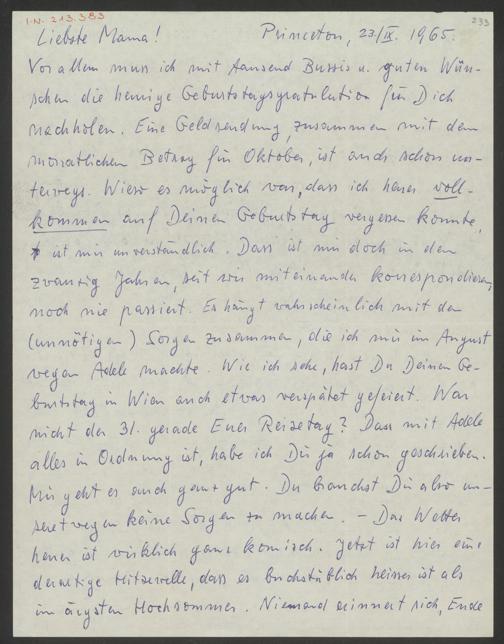 I.N. 213.383
233
Liebste Mama! Princeton, 23./IX. 1965.
Vor allem muss ich mit tausend Bussis u. guten Wün-
schen die heurige Geburtstagsgratulation für Dich
nachholen. Eine Geldsendung, zusammen mit dem
monatlichen Betrag für Oktober, ist auch schon un-
terwegs. Wieso es möglich war, dass ich heuer voll-
kommen auf Deinen Geburtstag vergessen konnte,
ist mir unverständlich. Dass ist mir doch in den
zwanzig Jahren, seit wir miteinander korrespondieren,
noch nie passiert. Es hängt wahrscheinlich mit den
(unnötigen) Sorgen zusammen, die ich mir im August
wegen Adele machte. Wie ich sehe, hast Du Deinen Ge-
burtstag in Wien auch etwas verspätet gefeiert. War
nicht der 31. gerade Euer Reisetag? Dass mit Adele
alles in Ordnung ist, habe ich Dir ja schon geschrieben.
Mir geht es auch ganz gut. Du brauchst Dir also un-
seretwegen keine Sorgen zu machen. – Das Wetter
heuer ist wirklich ganz komisch. Jetzt ist hier eine
derartige Hitzewelle, dass es buchstäblich heisser ist als
im ärgsten Hochsommer. Niemand erinnert sich, Ende